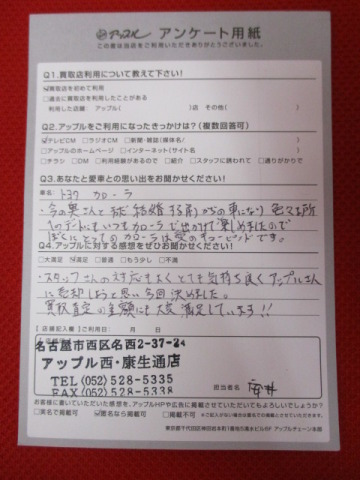 アップル アンケート用紙
この度は当店をご利用いただきありがとうございました。
Q1.買取店利用について教えて下さい!
☑買取店を初めて利用
□過去に買取店を利用したことがある
利用した店舗: アップル( )店 その他( )
Q2.アップルをご利用になったきっかけは?(複数回答可)
☑テレビCM □ラジオCM □新聞・雑誌(媒体名/ )
□アップルのホームページ □インターネット(サイト名 )
□チラシ □DM □利用経験があるので □紹介 □スタッフに誘われて □通りがかりで
Q3.あなたと愛車との思い出をお聞かせください!
車名: トヨタ カローラ
・今の奥さんとまだ結婚する前からの車になり色々な所
へのデートにもいつもカローラで出かけて楽しめましたので
ぼくにとってのカローラは愛のキューピッドです。
Q4.アップルに対する感想をぜひお聞かせください!
□大満足 ☑満足 □普通 □もう少し □不満
・スタッフさんの対応もよくとても気持ち良くアップルさん
に売却しようと思い今回決めました。
買取査定の金額にも大変満足しています!!
【店頭記入欄】ご利用日: 月 日
名古屋市西区名西2-37-24
アップル西・康生通店
TEL(052)528-5335
FAX(052)528-5338
担当者名
お客様に書いていただいた感想を、アップルHPや広告に掲載させていただいてもよろしいでしょうか?
□実名で掲載可 ☑匿名なら掲載可 □掲載不可